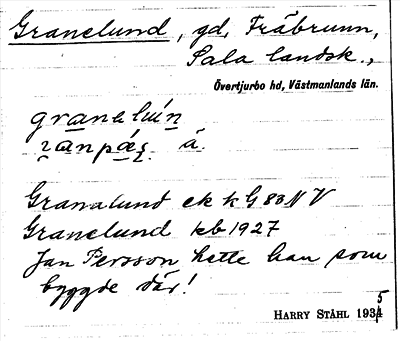 Granelund, gd, Fräbrunn,
Sala landsk.,
Övertjurbo hd, Västmanlands län.
granelún
ranpǽs å.
Granalund ek k G 83 N V
Granelund kb 1927
Jan Persson hette han som
byggde där!
HARRY STÅHL 1935